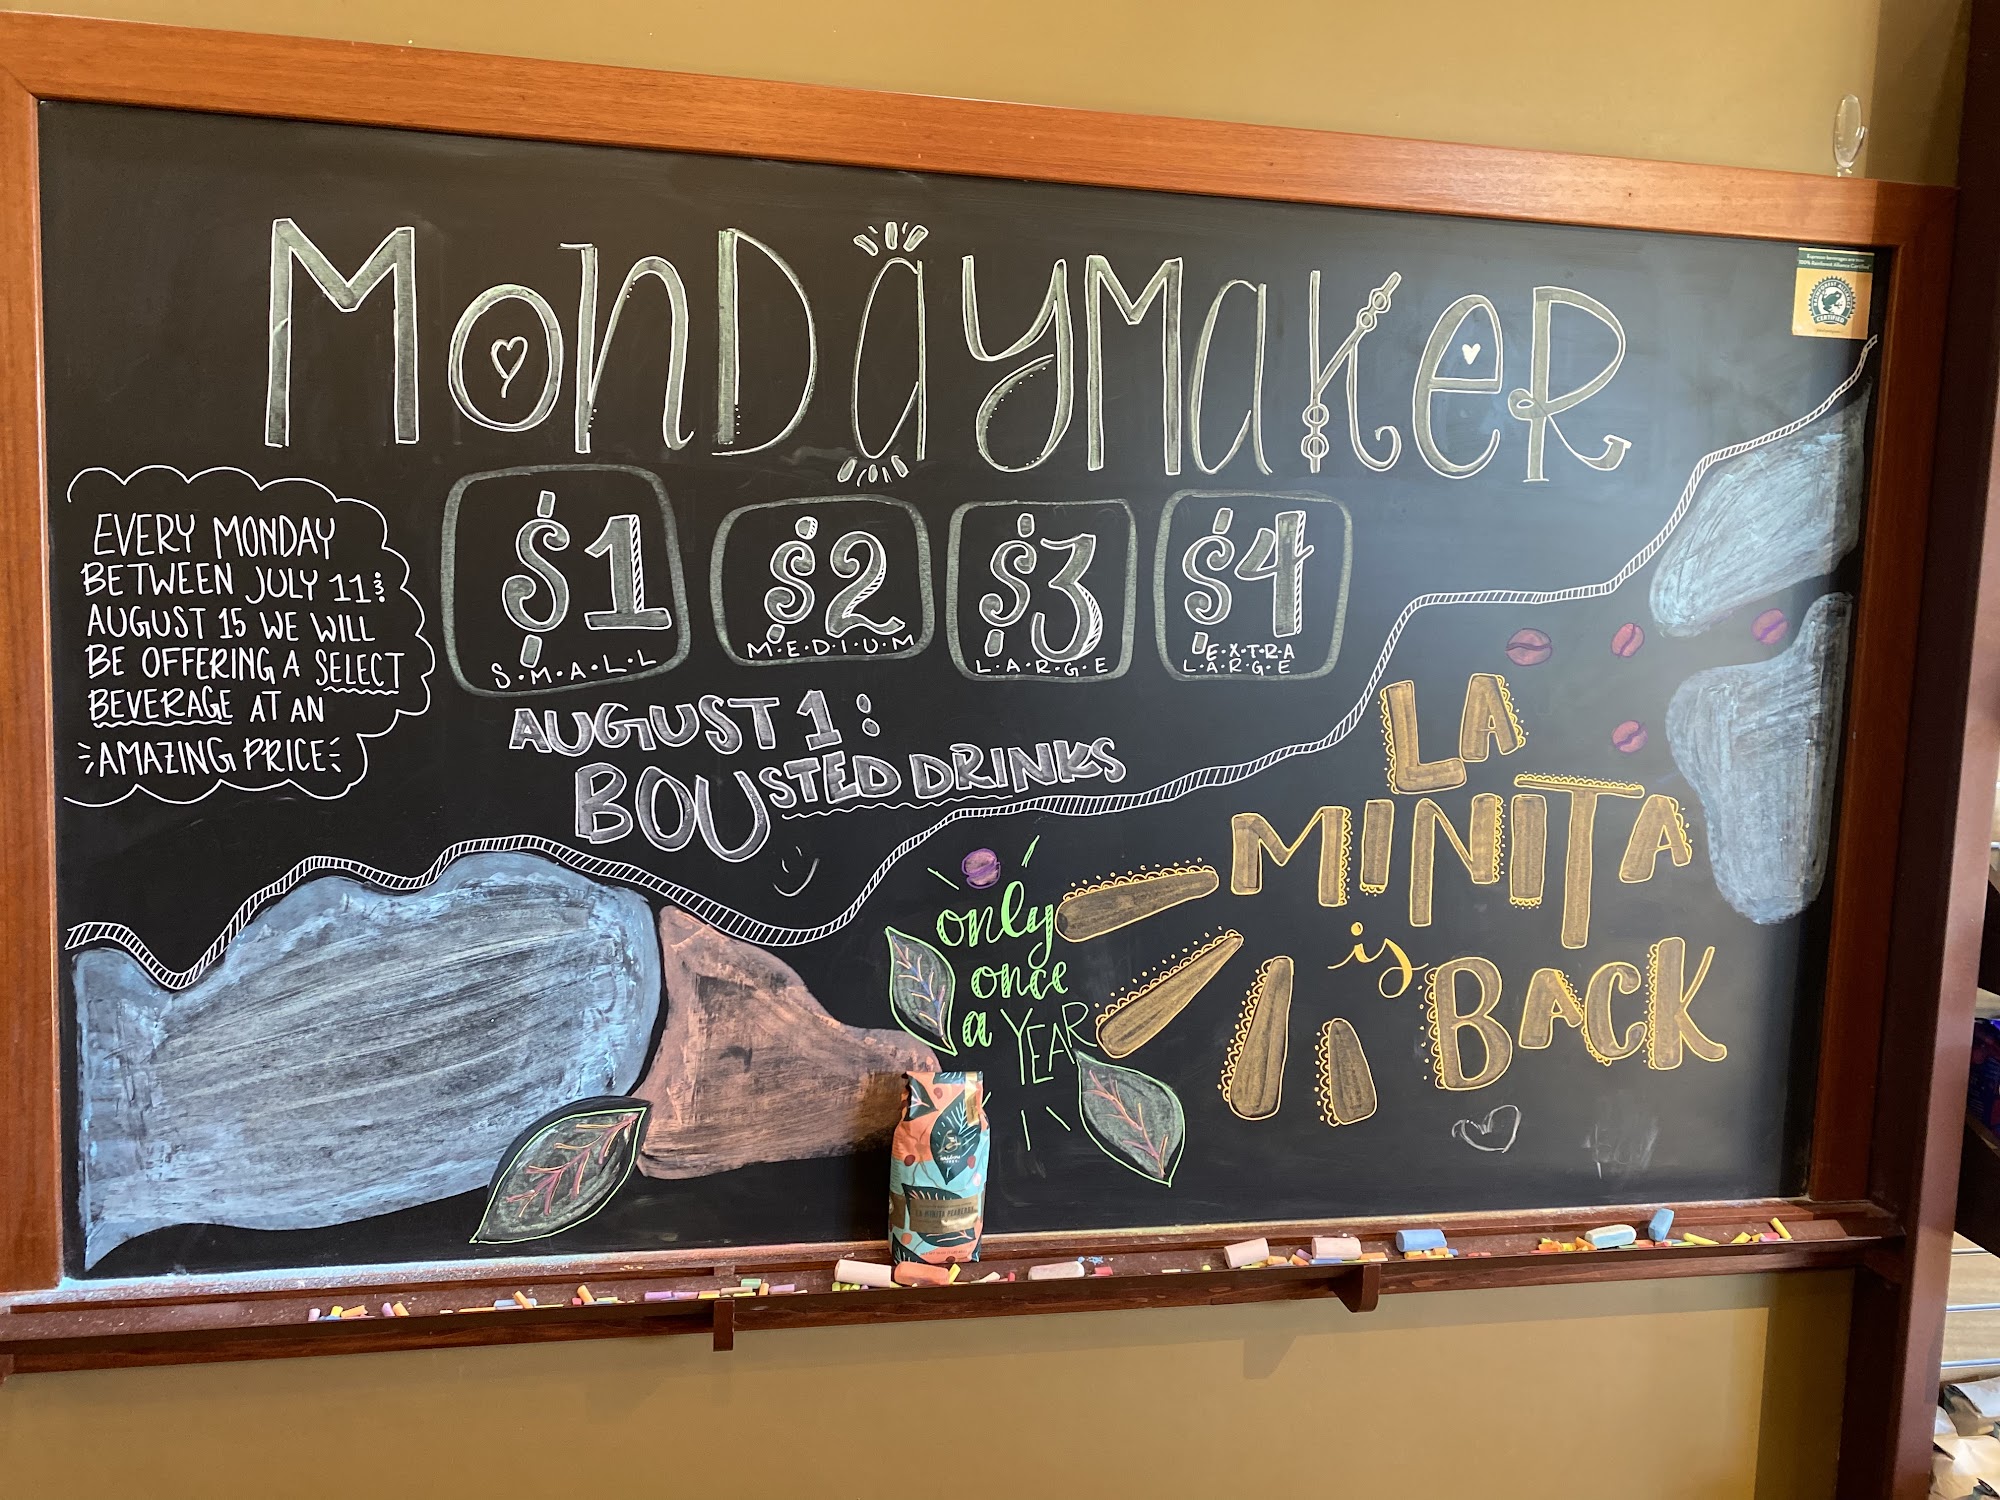 MonDayMaKeR
EVERY MONDAY
BETWEEN JULY 11 &
AUGUST 15 WE WILL
BE OFFERING A SELECT
BEVERAGE AT AN
AMAZING PRICE
$1
S·M·A·L·L
$2
M·E·D·I·U·M
$3
L·A·R·G·E
$4
E·X·T·R·A
L·A·R·G·E
AUGUST 1:
BOUSTED DRINKS
only
once
a YEAR
LA
MINITA
is BACK
LA MINITA PEABERRY
Espresso beverages are now
100% Rainforest Alliance Certified
CERTIFIED